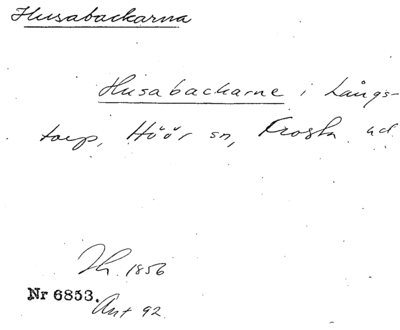 Husabackarna
Husabackarne i Långs-
torp, Höör sn, Frosta hd
Jh. 1856
Nr 6853.
Ant 92.